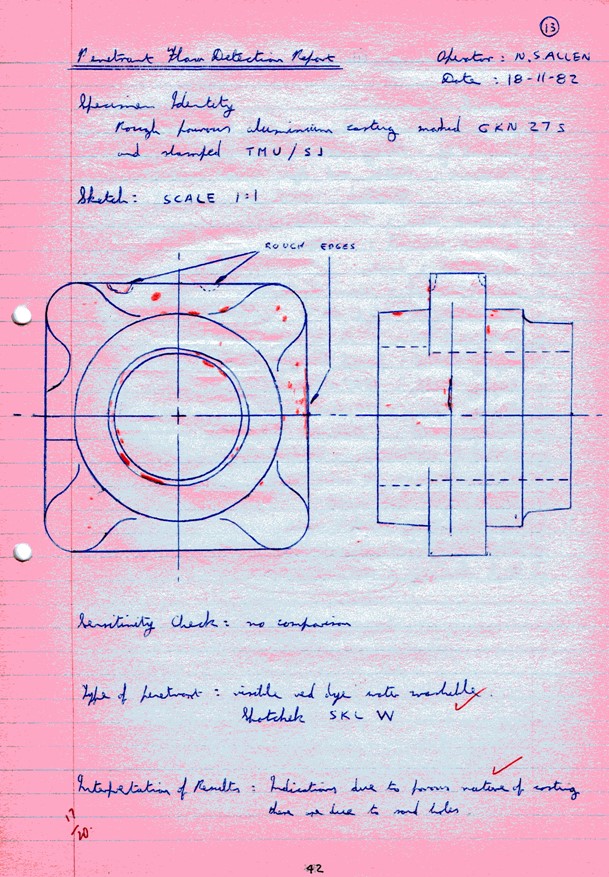 13
Penetrant Flaw Detection Report
Operator : N.S ALLEN
Date : 18-11-82
Specimen Identity
Rough porous aluminium casting marked GKN 27 S
and stamped TMU/SJ
Sketch : SCALE 1:1
ROUGH EDGES
Sensitivity Check : no comparison
Type of penetrant : visible red dye water washable.
Spotchek SKL W
Interpretation of Results : Indications due to porous nature of casting
these are due to sand holes.
17/20.
42